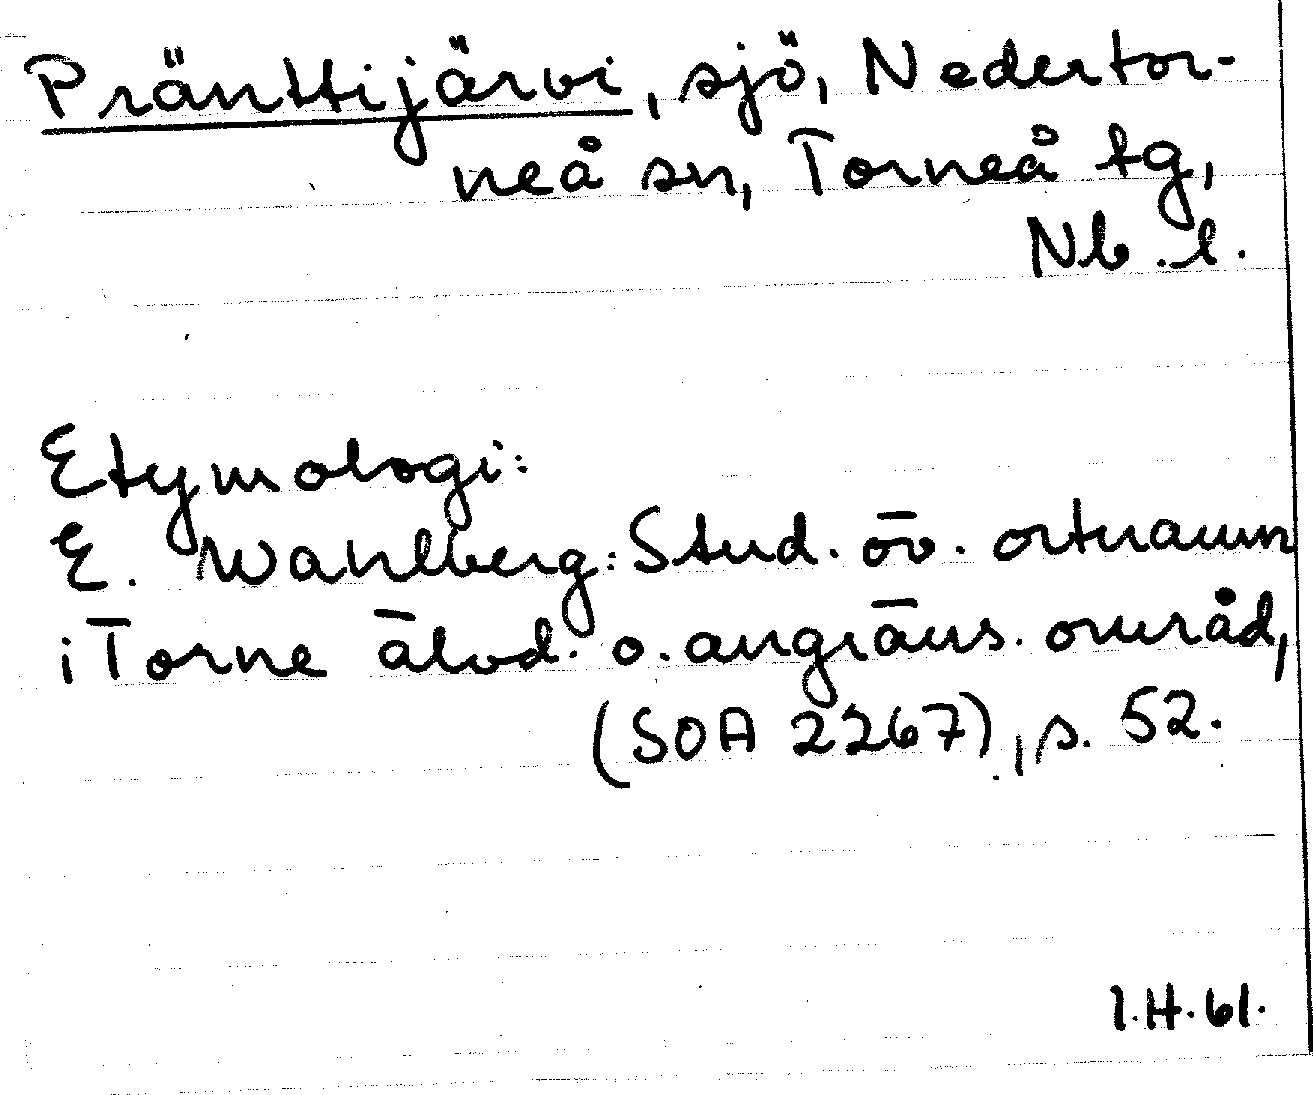 Pränttijärvi, sjö, Nedertor-
neå sn, Torneå tg,
Nb.l.
Etymologi:
E. Wahlberg: Stud. öv. ortnamn
i Torne älvd. o. angräns. områd,
(SOA 2267), s. 52.
I.H.61.